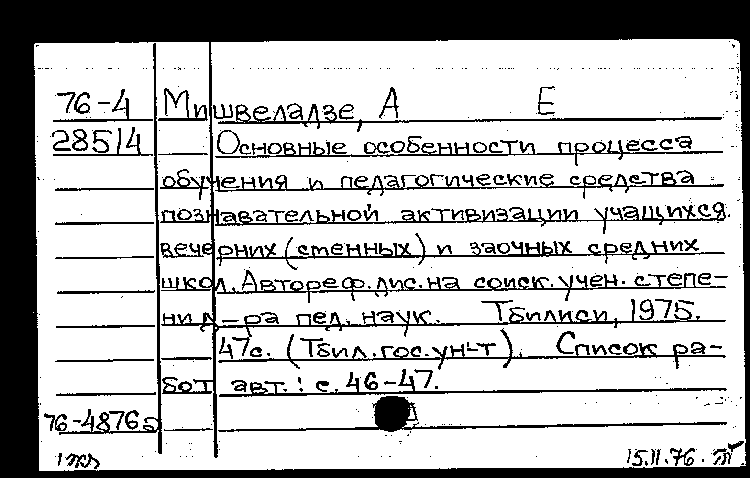 76-4 Мишвеладзе, А Е
28514 Основные особенности процесса
обучения и педагогические средства
познавательной активизации учащихся
вечерних (сменных) и заочных средних
школ. Автореф. дис. на соиск. учен. степе-
ни д-ра пед. наук. Тбилиси, 1975.
47с. (Тбил. гос. ун-т). Список ра-
бот авт.: с. 46-47.
76-4876
15.11.76.